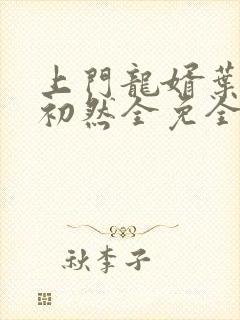 上門龍婿葉
初然全免全
秋李子